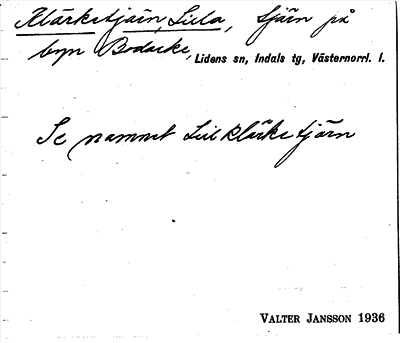 Klärketjärn, Lilla, tjärn på
byn Bodacke, Lidens sn, Indals tg, Västernorrl. l.
Se namnet Lillklärketjärn
VALTER JANSSON 1936